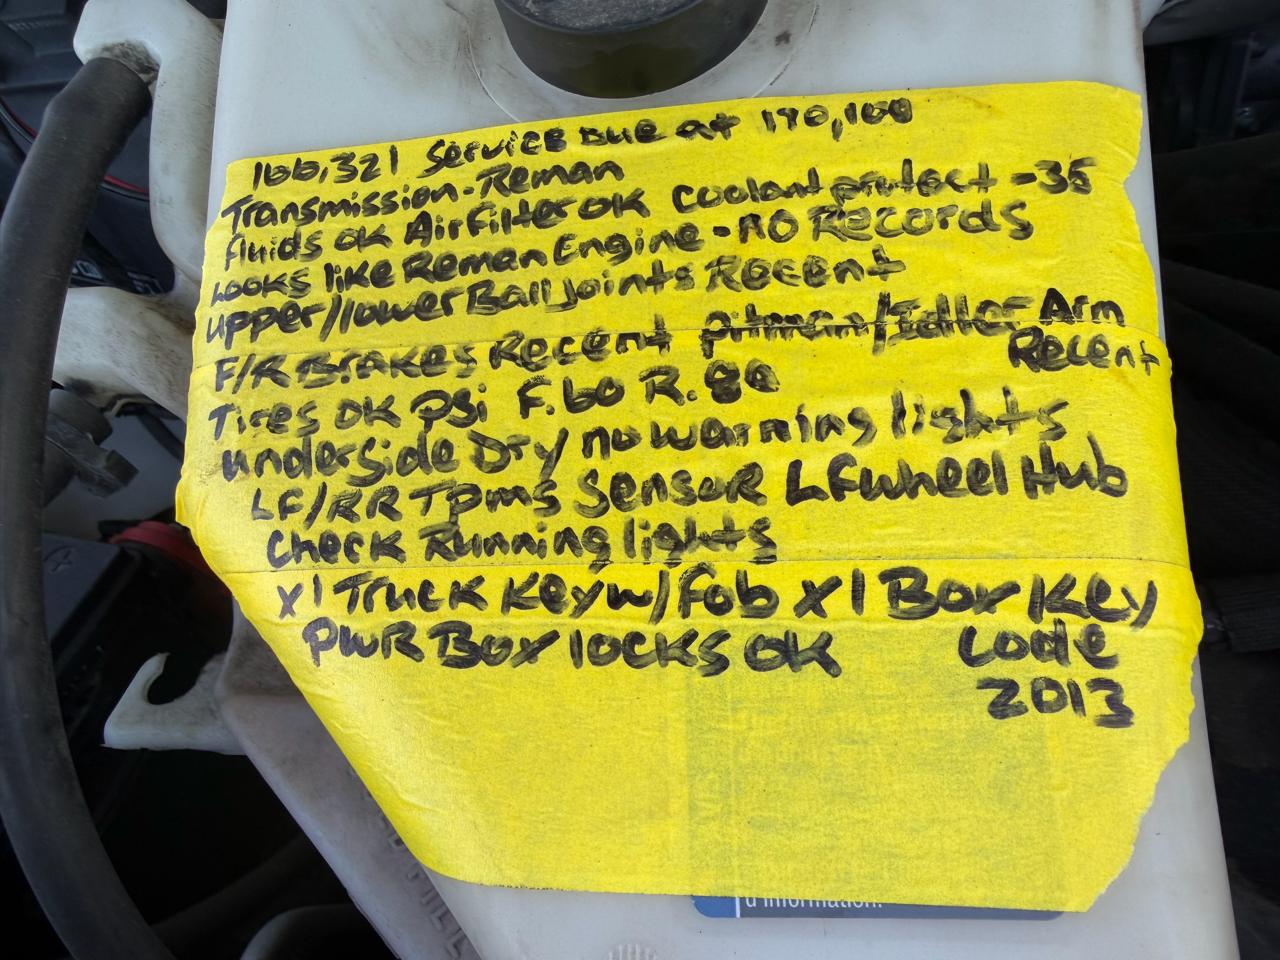 166,321 Service Due at 170,100
Transmission-Reman
fluids ok Air Filter OK coolant protect -35
Looks like Reman Engine - NO Records
upper/lower Ball Joints Recent
F/R Brakes Recent pitman/Idler Arm Recent
Tires OK psi F.60 R.80
underside Dry no warning lights
LF/RR Tpms Sensor LF wheel Hub
check Running lights
x1 Truck Key w/Fob x1 Box Key
PWR Box locks OK Code
2013
d information.